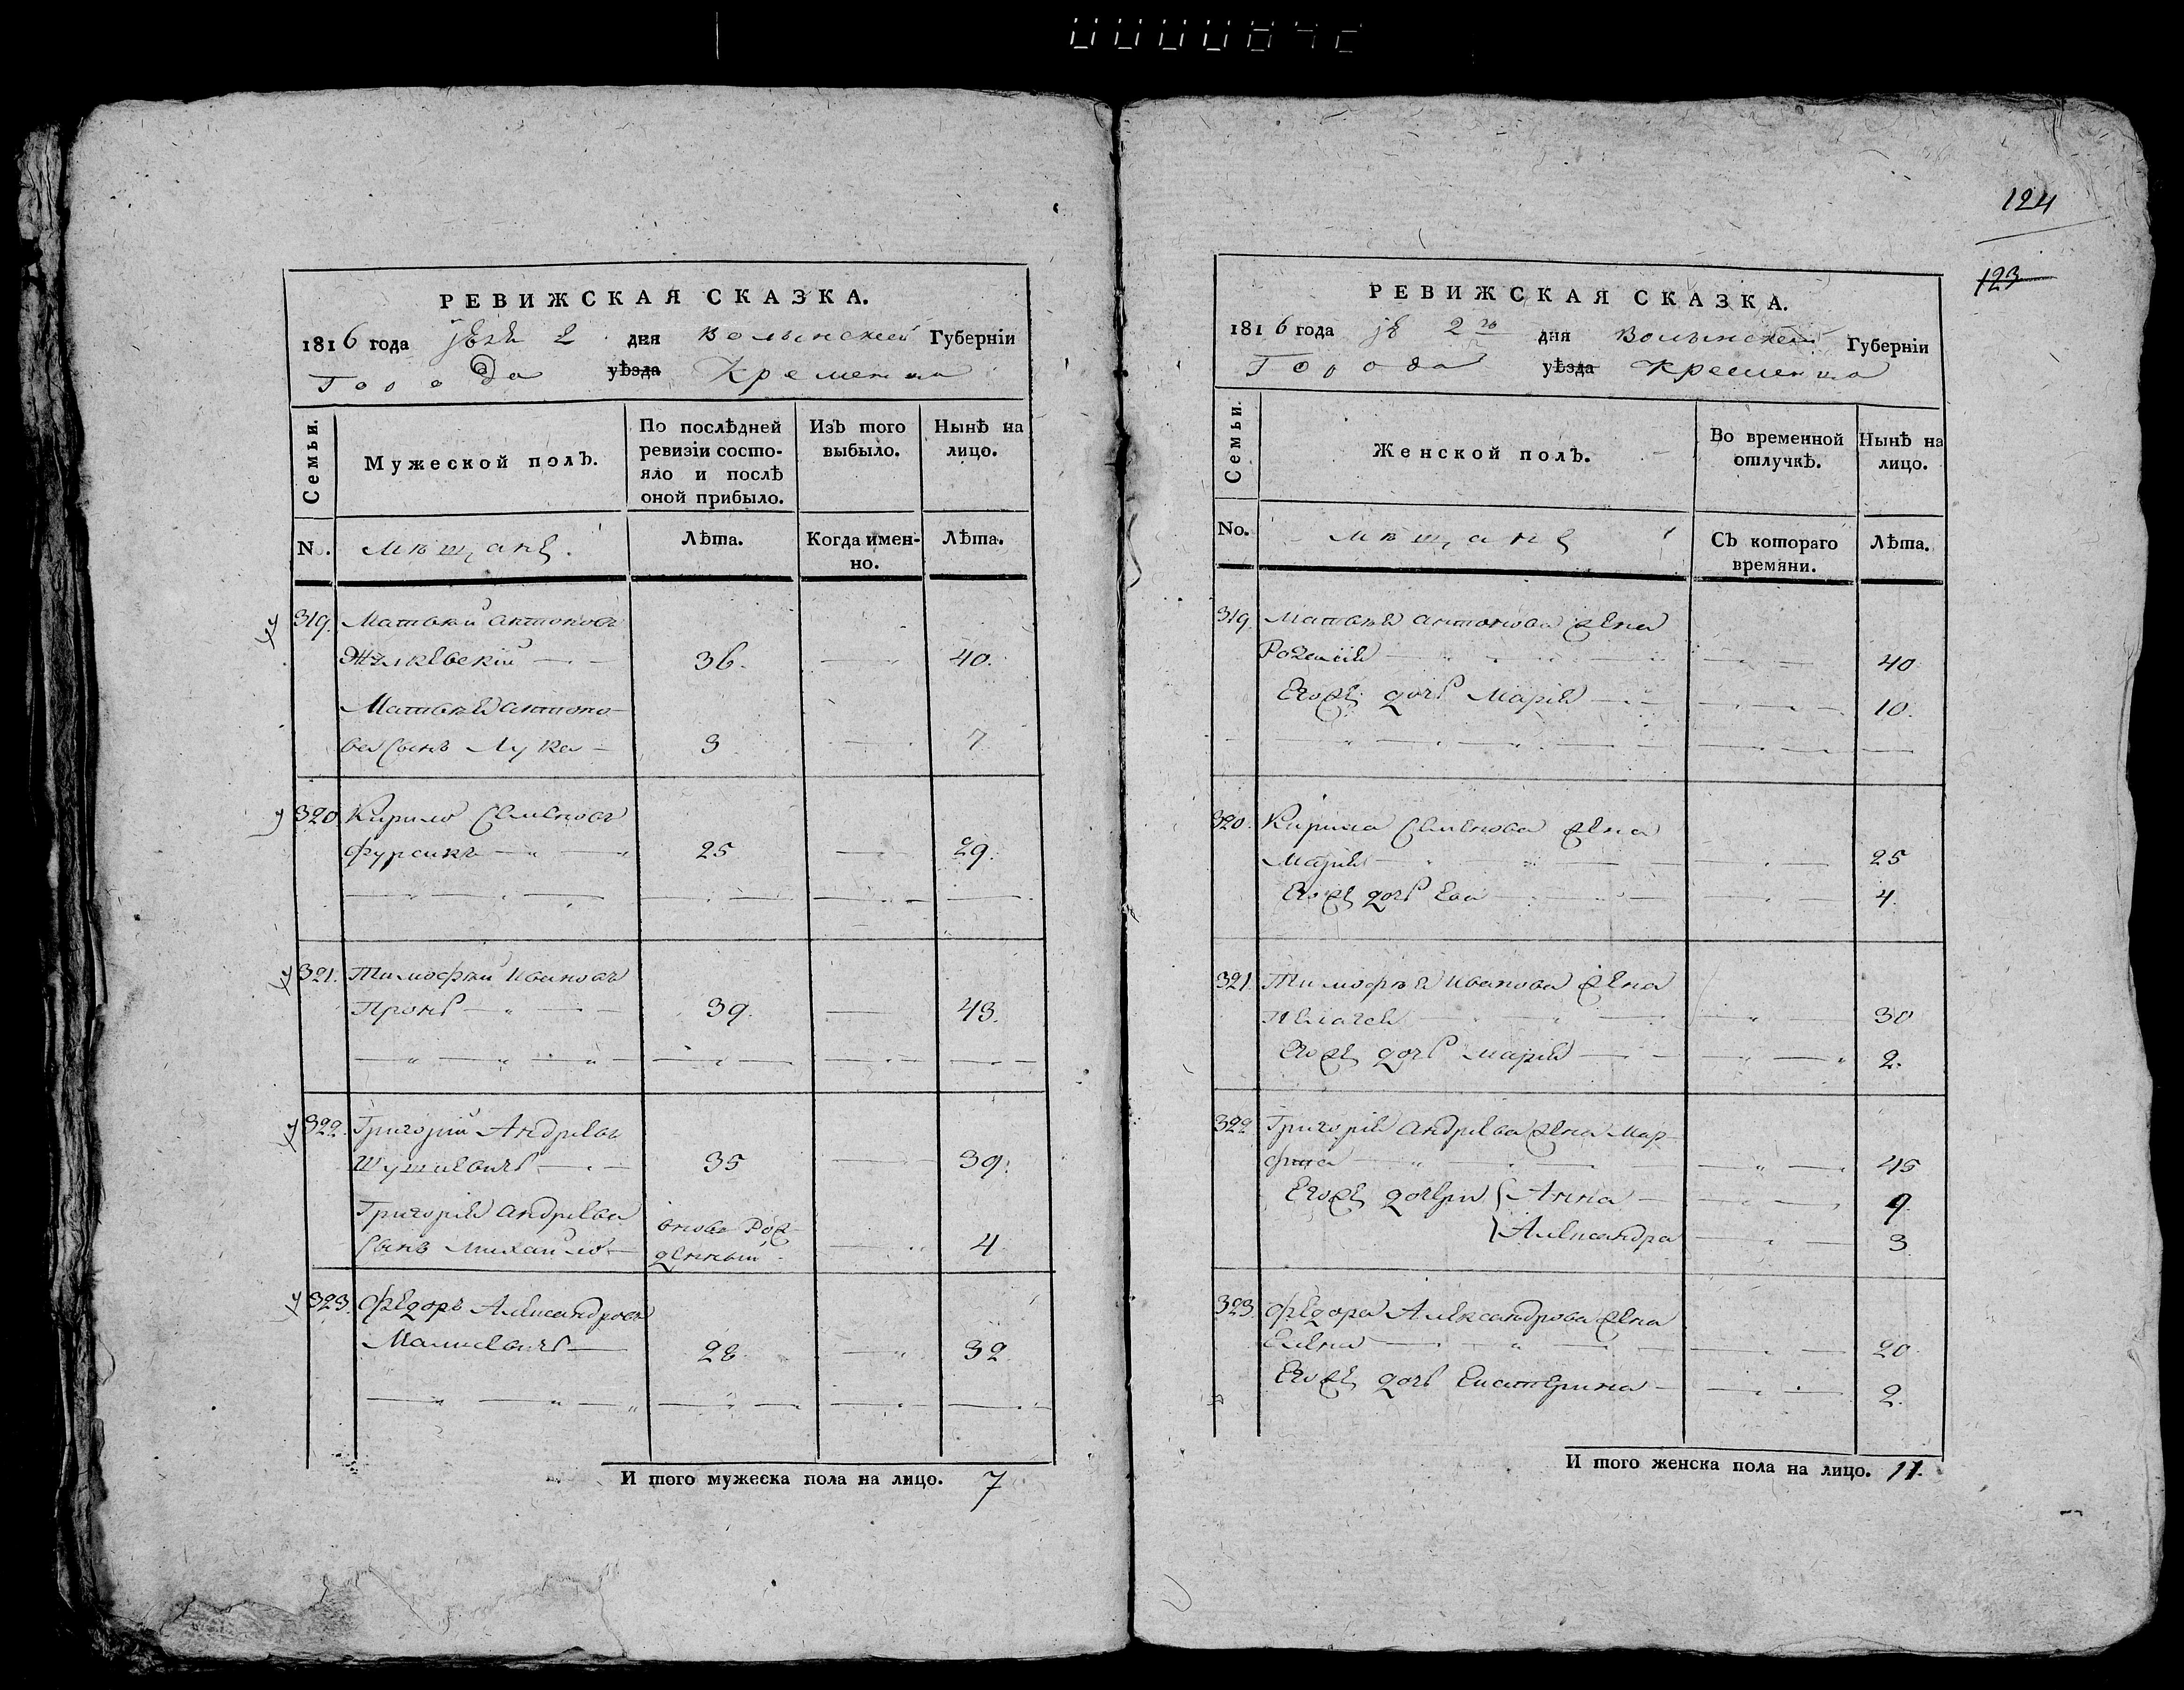 124
123
РЕВИЖСКАЯ СКАЗКА.
1816 года 2 дня Волынской Губернїи
Города уѣзда Кременца
Семьи.
Мужеской полъ.
По послѣдней ревизїи состояло и послѣ оной прибыло.
Изъ того выбыло.
Нынѣ на лицо.
No. мѣщане.
Лѣта.
Когда именно.
Лѣта.
319. Матвѣй Антоновъ
36. 40.
Матвѣя Антоно-
ва сынъ Лука 3 7
320 Кирило Семеновъ
Фурсикъ 25 29.
321. Тимофѣй Ивановъ
Пронь 39. 43.
322. Григорій Андреевъ
35 39.
Григорія Андреева вновь рож-
сынъ Михайло денный 4
323. Федоръ Александровъ
Малиевичь 28 32
И того мужеска пола на лицо. 7
РЕВИЖСКАЯ СКАЗКА.
1816 года 2го дня Волынской Губернїи
Города уѣзда Кременца
Семьи.
Женской полъ.
Во временной отлучкѣ.
Нынѣ на лицо.
No. мѣщане
Съ котораго времяни.
Лѣта.
319. Матвѣя Антонова жена
40
Егоже дочь Марія 10.
320. Кирила Семенова жена
Марія 25
Егоже дочь Ева 4.
321. Тимофѣя Иванова жена
Пелагея 30
Егоже дочь Марія 2.
322 Григорія Андреева жена Мар-
45
Егоже дочери Анна 9
Александра 3
323 Федора Александрова жена
Елена 20
Егоже дочь Екатерина 2.
И того женска пола на лицо. 11.